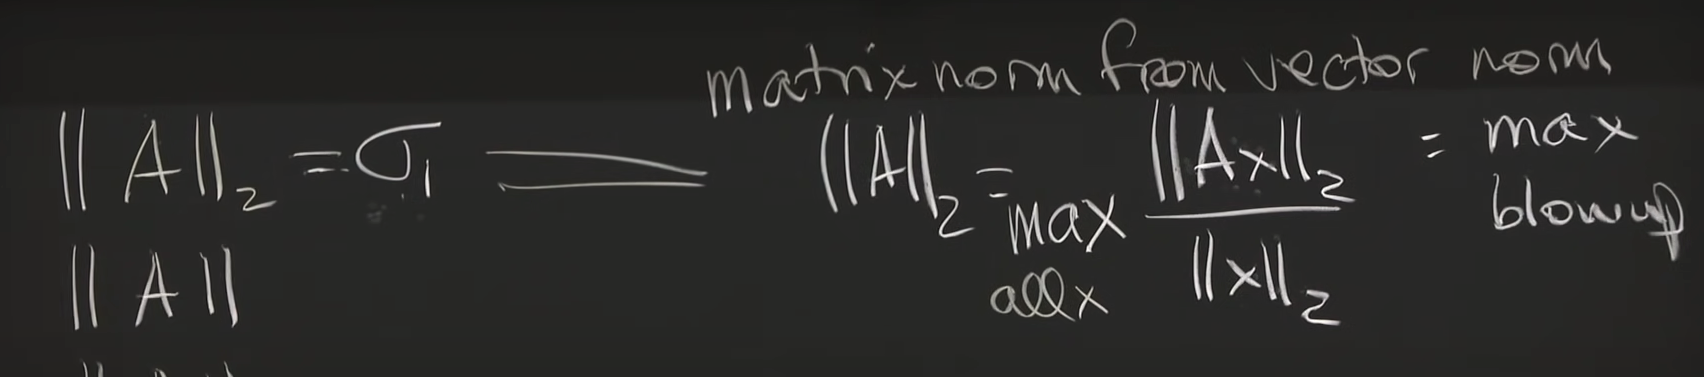 matrix norm from vector norm
||A||₂ = σ₁ = ||A||₂ = max all x ||Ax||₂ / ||x||₂ = max blowup
||A||